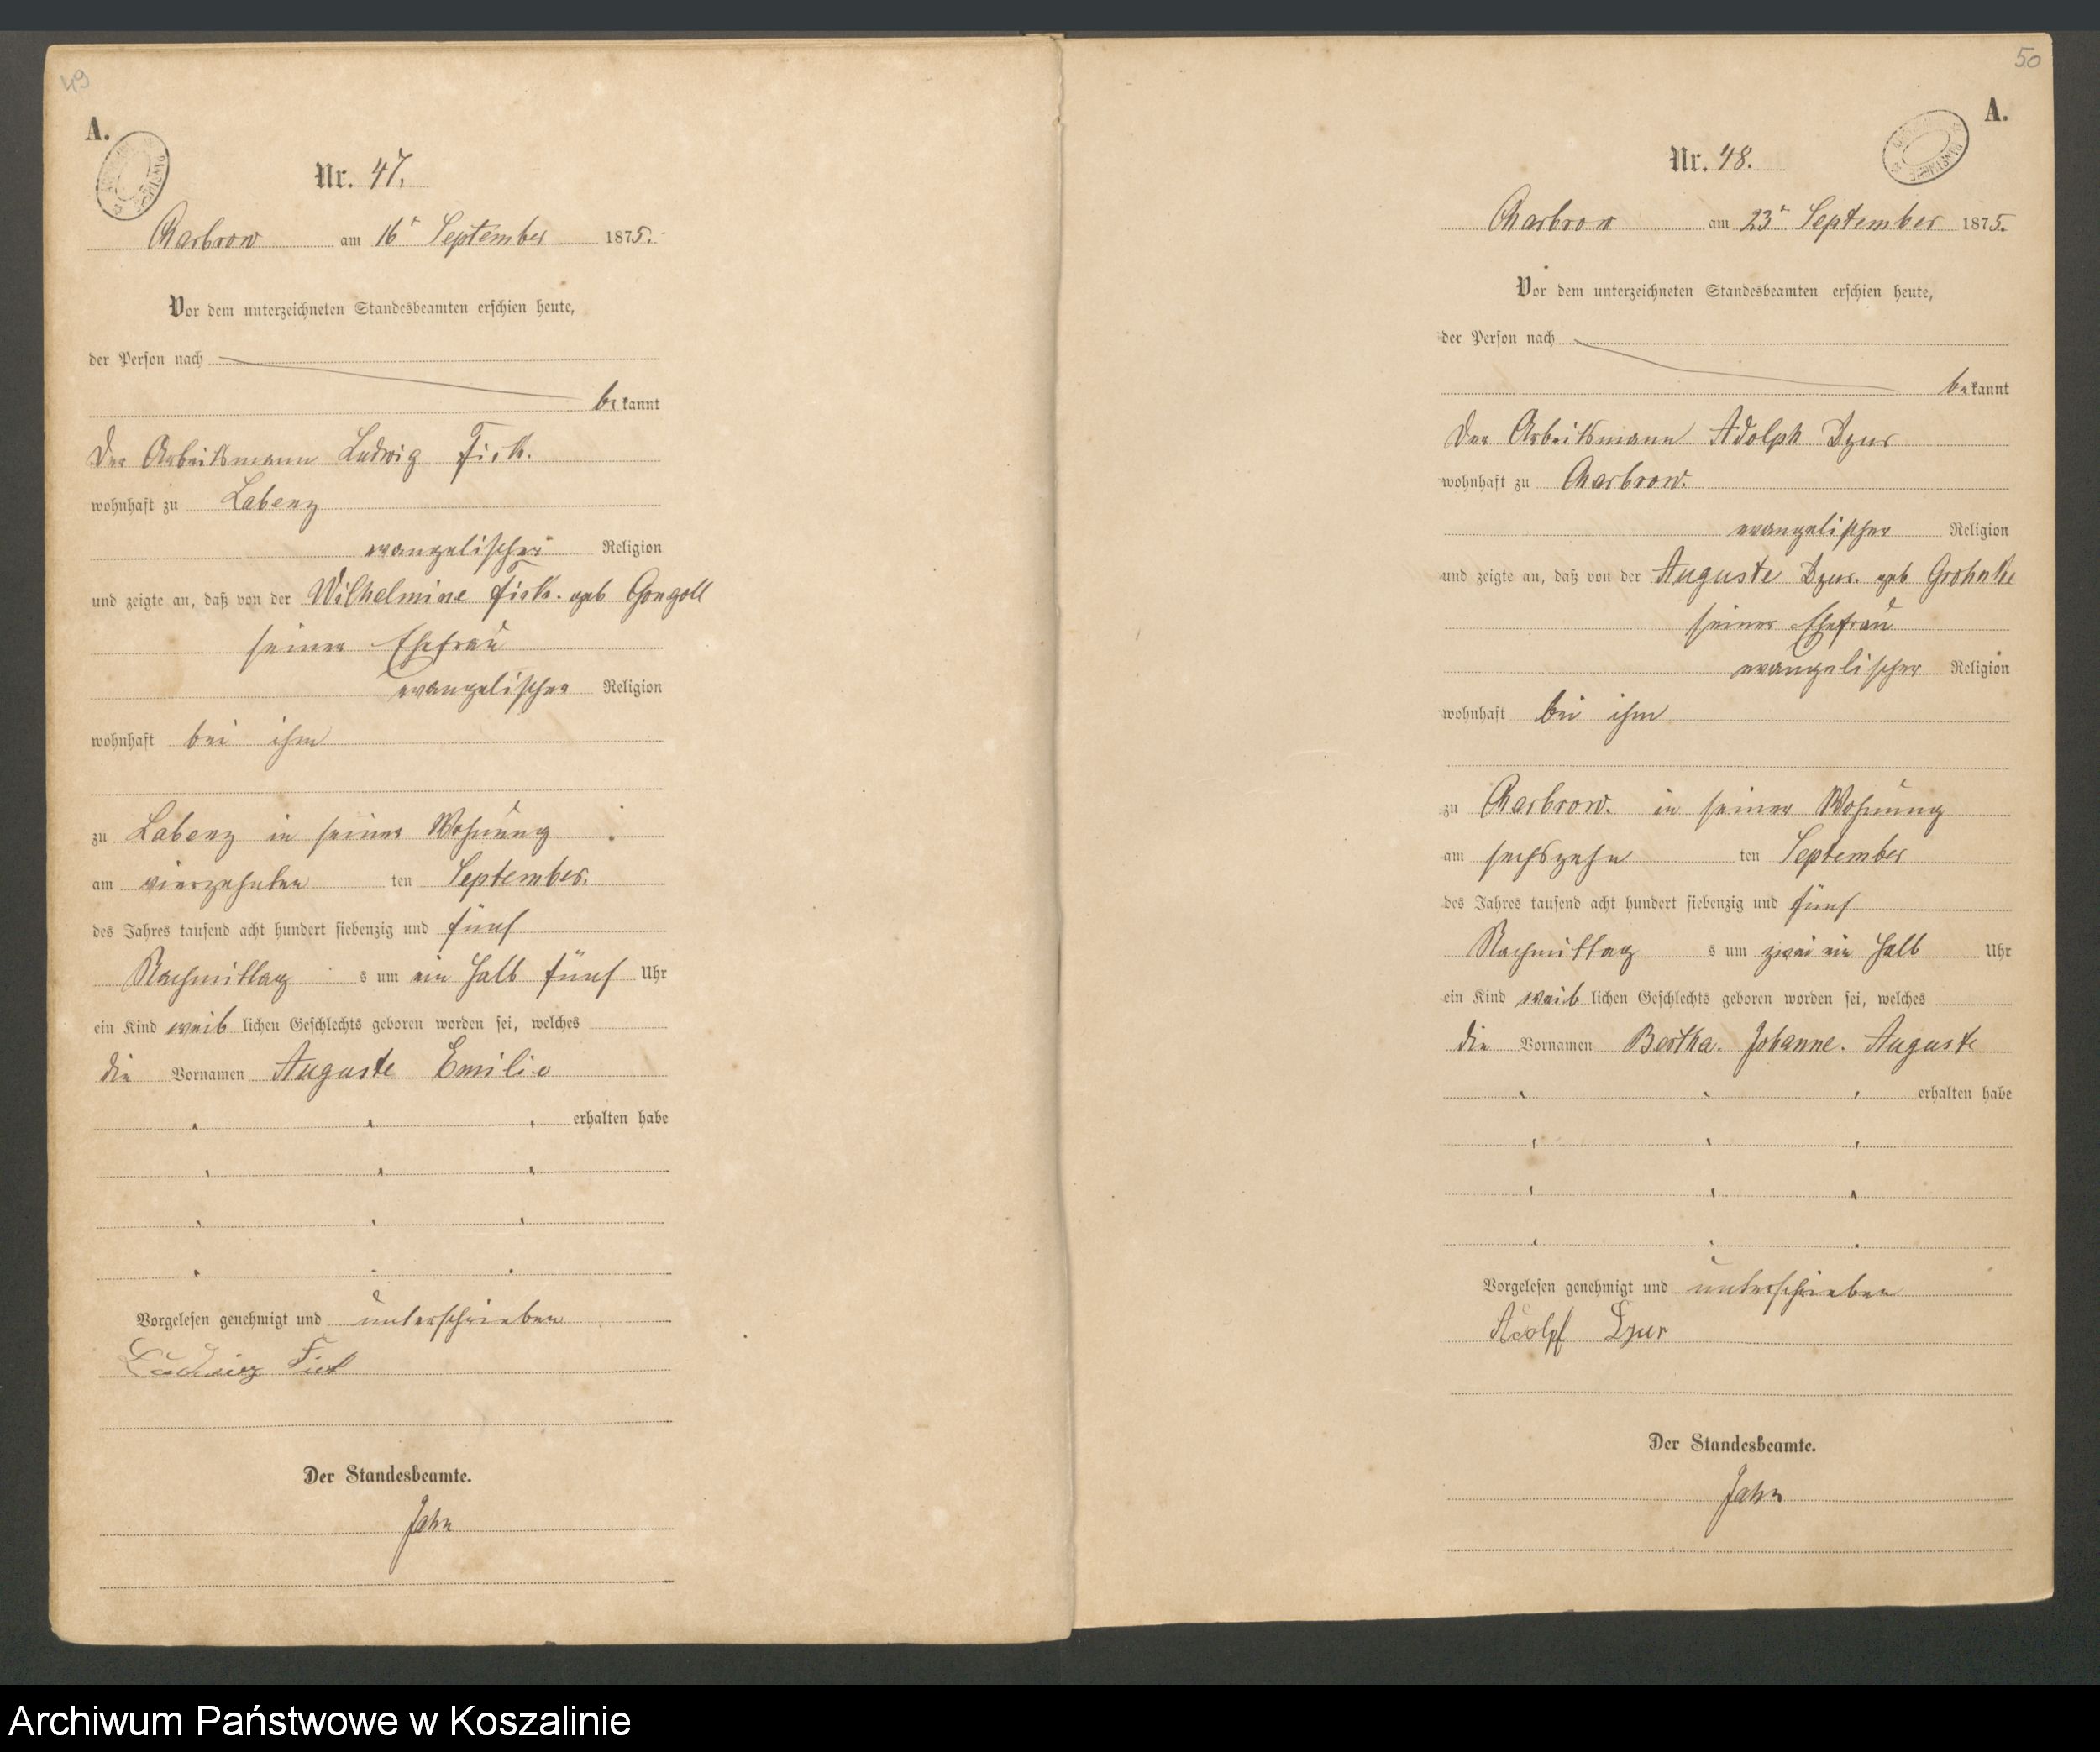 49
A.
Nr. 47.
Charbrow am 16t September 1875.
Vor dem unterzeichneten Standesbeamten erschien heute,
der Person nach
bekannt
Der Arbeitsmann Ludwig Fick.
wohnhaft zu Labenz
evangelischer Religion
und zeigte an, daß von der Wilhelmine Fick. geb Gongoll
seiner Ehefrau
evangelischer Religion
wohnhaft bei ihm
zu Labenz in seiner Wohnung
am vierzehnten ten September.
des Jahres tausend acht hundert siebenzig und fünf
Nachmittag s um ein halb fünf Uhr
ein Kind weiblichen Geschlechts geboren worden sei, welches
die Vornamen Auguste Emilie
erhalten habe
Vorgelesen genehmigt und unterschrieben
Ludwig Fick
Der Standesbeamte.
Jahn
50
A.
Nr. 48.
Charbrow am 23t September 1875.
Vor dem unterzeichneten Standesbeamten erschien heute,
der Person nach
bekannt
Der Arbeitsmann Adolph Dzur
wohnhaft zu Charbrow.
evangelischer Religion
und zeigte an, daß von der Auguste Dzur. geb Grohnke
seiner Ehefrau
evangelischer Religion
wohnhaft bei ihm
zu Charbrow. in seiner Wohnung
am sechszehn ten September
des Jahres tausend acht hundert siebenzig und fünf
Nachmittag s um zwei ein halb Uhr
ein Kind weiblichen Geschlechts geboren worden sei, welches
die Vornamen Bertha. Johanne. Auguste
erhalten habe
Vorgelesen genehmigt und unterschrieben
Adolpf Dzur
Der Standesbeamte.
Jahn
Archiwum Państwowe w Koszalinie